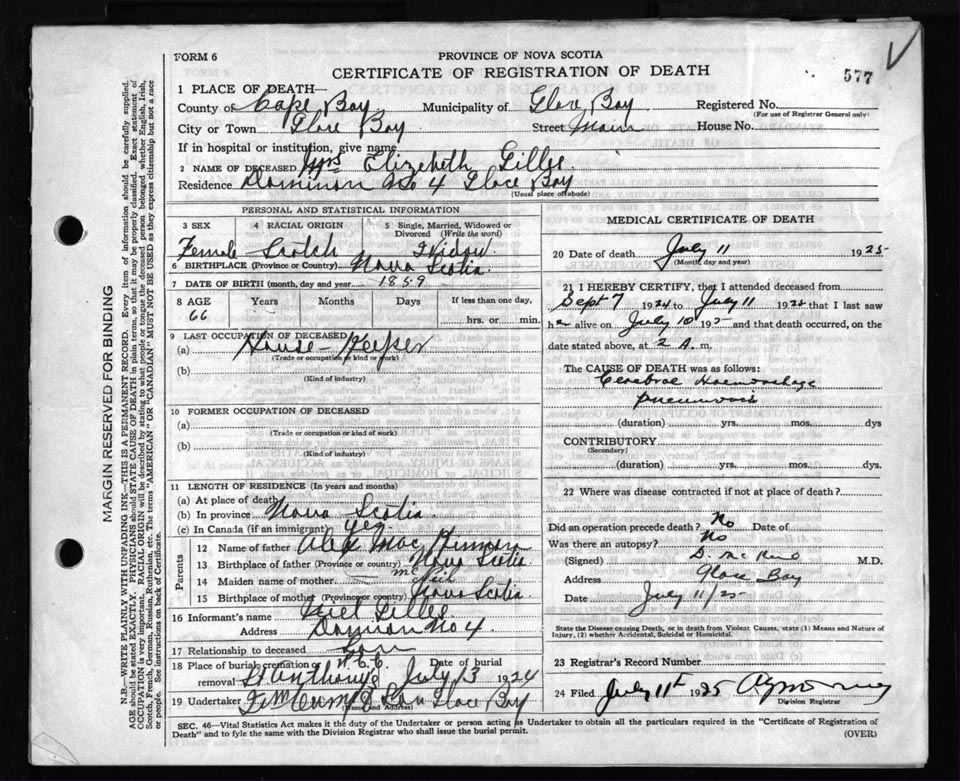 FORM 6
PROVINCE OF NOVA SCOTIA
CERTIFICATE OF REGISTRATION OF DEATH
577
1 PLACE OF DEATH—
County of Cape Bay Municipality of Glace Bay Registered No.
(For use of Registrar General only)
City or Town Glace Bay Street Main House No.
If in hospital or institution, give name
2 NAME OF DECEASED Mrs Elizebeth Gillis
Residence Dominion No 4 Glace Bay
(Usual place of abode)
PERSONAL AND STATISTICAL INFORMATION
3 SEX 4 RACIAL ORIGIN 5 Single, Married, Widowed or Divorced (Write the word)
Female Scotch Widow
6 BIRTHPLACE (Province or Country) Nova Scotia
7 DATE OF BIRTH (month, day and year) 1859
8 AGE Years Months Days If less than one day,
66 hrs. or min.
9 LAST OCCUPATION OF DECEASED
(a) House-Keeper
(Trade or occupation or kind of work)
(b)
(Kind of industry)
10 FORMER OCCUPATION OF DECEASED
(a)
(Trade or occupation or kind of work)
(b)
(Kind of industry)
11 LENGTH OF RESIDENCE (In years and months)
(a) At place of death
(b) In province Nova Scotia
(c) In Canada (if an immigrant) yes
Parents
12 Name of father Alex Mac Kinnon
13 Birthplace of father (Province or country) Nova Scotia
14 Maiden name of mother Mc Neil
15 Birthplace of mother (Province or country) Nova Scotia
16 Informant's name Niel Gillis
Address Dominion No 4
17 Relationship to deceased Son
18 Place of burial, cremation or removal Date of burial
St Anthonys July 13 1924
19 Undertaker & Son Glace Bay
(Name and Address)
MEDICAL CERTIFICATE OF DEATH
20 Date of death July 11 1925
(Month, day and year)
21 I HEREBY CERTIFY, that I attended deceased from
Sept 7 1924 to July 11 192 that I last saw
her alive on July 10 192 and that death occurred, on the
date stated above, at 2 A. m.
The CAUSE OF DEATH was as follows:
Cerebral Haemorrhage
pneumonia
(duration) yrs. mos. dys
CONTRIBUTORY
(Secondary)
(duration) yrs. mos. dys.
22 Where was disease contracted if not at place of death?
Did an operation precede death? No Date of
Was there an autopsy? No
(Signed) M.D.
Address Glace Bay
Date July 11/25
State the Disease causing Death, or in death from Violent Causes, state (1) Means and Nature of
Injury, (2) whether Accidental, Suicidal or Homicidal.
23 Registrar's Record Number
24 Filed July 11th 1925
Division Registrar
SEC. 46—Vital Statistics Act makes it the duty of the Undertaker or person acting as Undertaker to obtain all the particulars required in the "Certificate of Registration of
Death" and to fyle the same with the Division Registrar who shall issue the burial permit.
(OVER)
MARGIN RESERVED FOR BINDING
N.B.—WRITE PLAINLY WITH UNFADING INK—THIS IS A PERMANENT RECORD. Every item of information should be carefully supplied.
AGE should be stated EXACTLY. PHYSICIANS should STATE CAUSE OF DEATH in plain terms, so that it may be properly classified. Exact statement of
OCCUPATION is very important. RACIAL ORIGIN will be described by stating to what people or tongue the deceased person belonged whether English, Irish,
Scotch, French, German, Russian, Ruthenian, etc. The terms "AMERICAN" or "CANADIAN" MUST NOT BE USED as they express citizenship but not a race
or people. See instructions on back of Certificate.